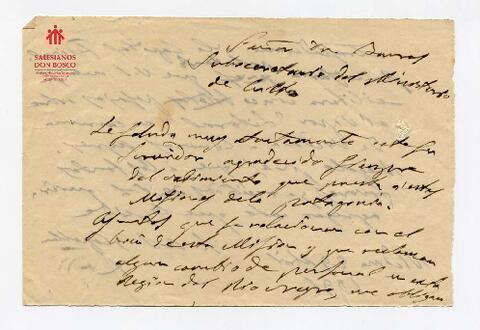 SALESIANOS
DON BOSCO
Señor Dr.
Subsecretario del Ministerio
de Culto
Le saluda muy atentamente este su
Servidor, agradecido siempre
del que presta a estas
Misiones de la patagonia.
Asuntos que se relacionan con el
bien de esta Mision y que reclaman
algun cambio de personal en esta
Region del Rionegro, me obligan